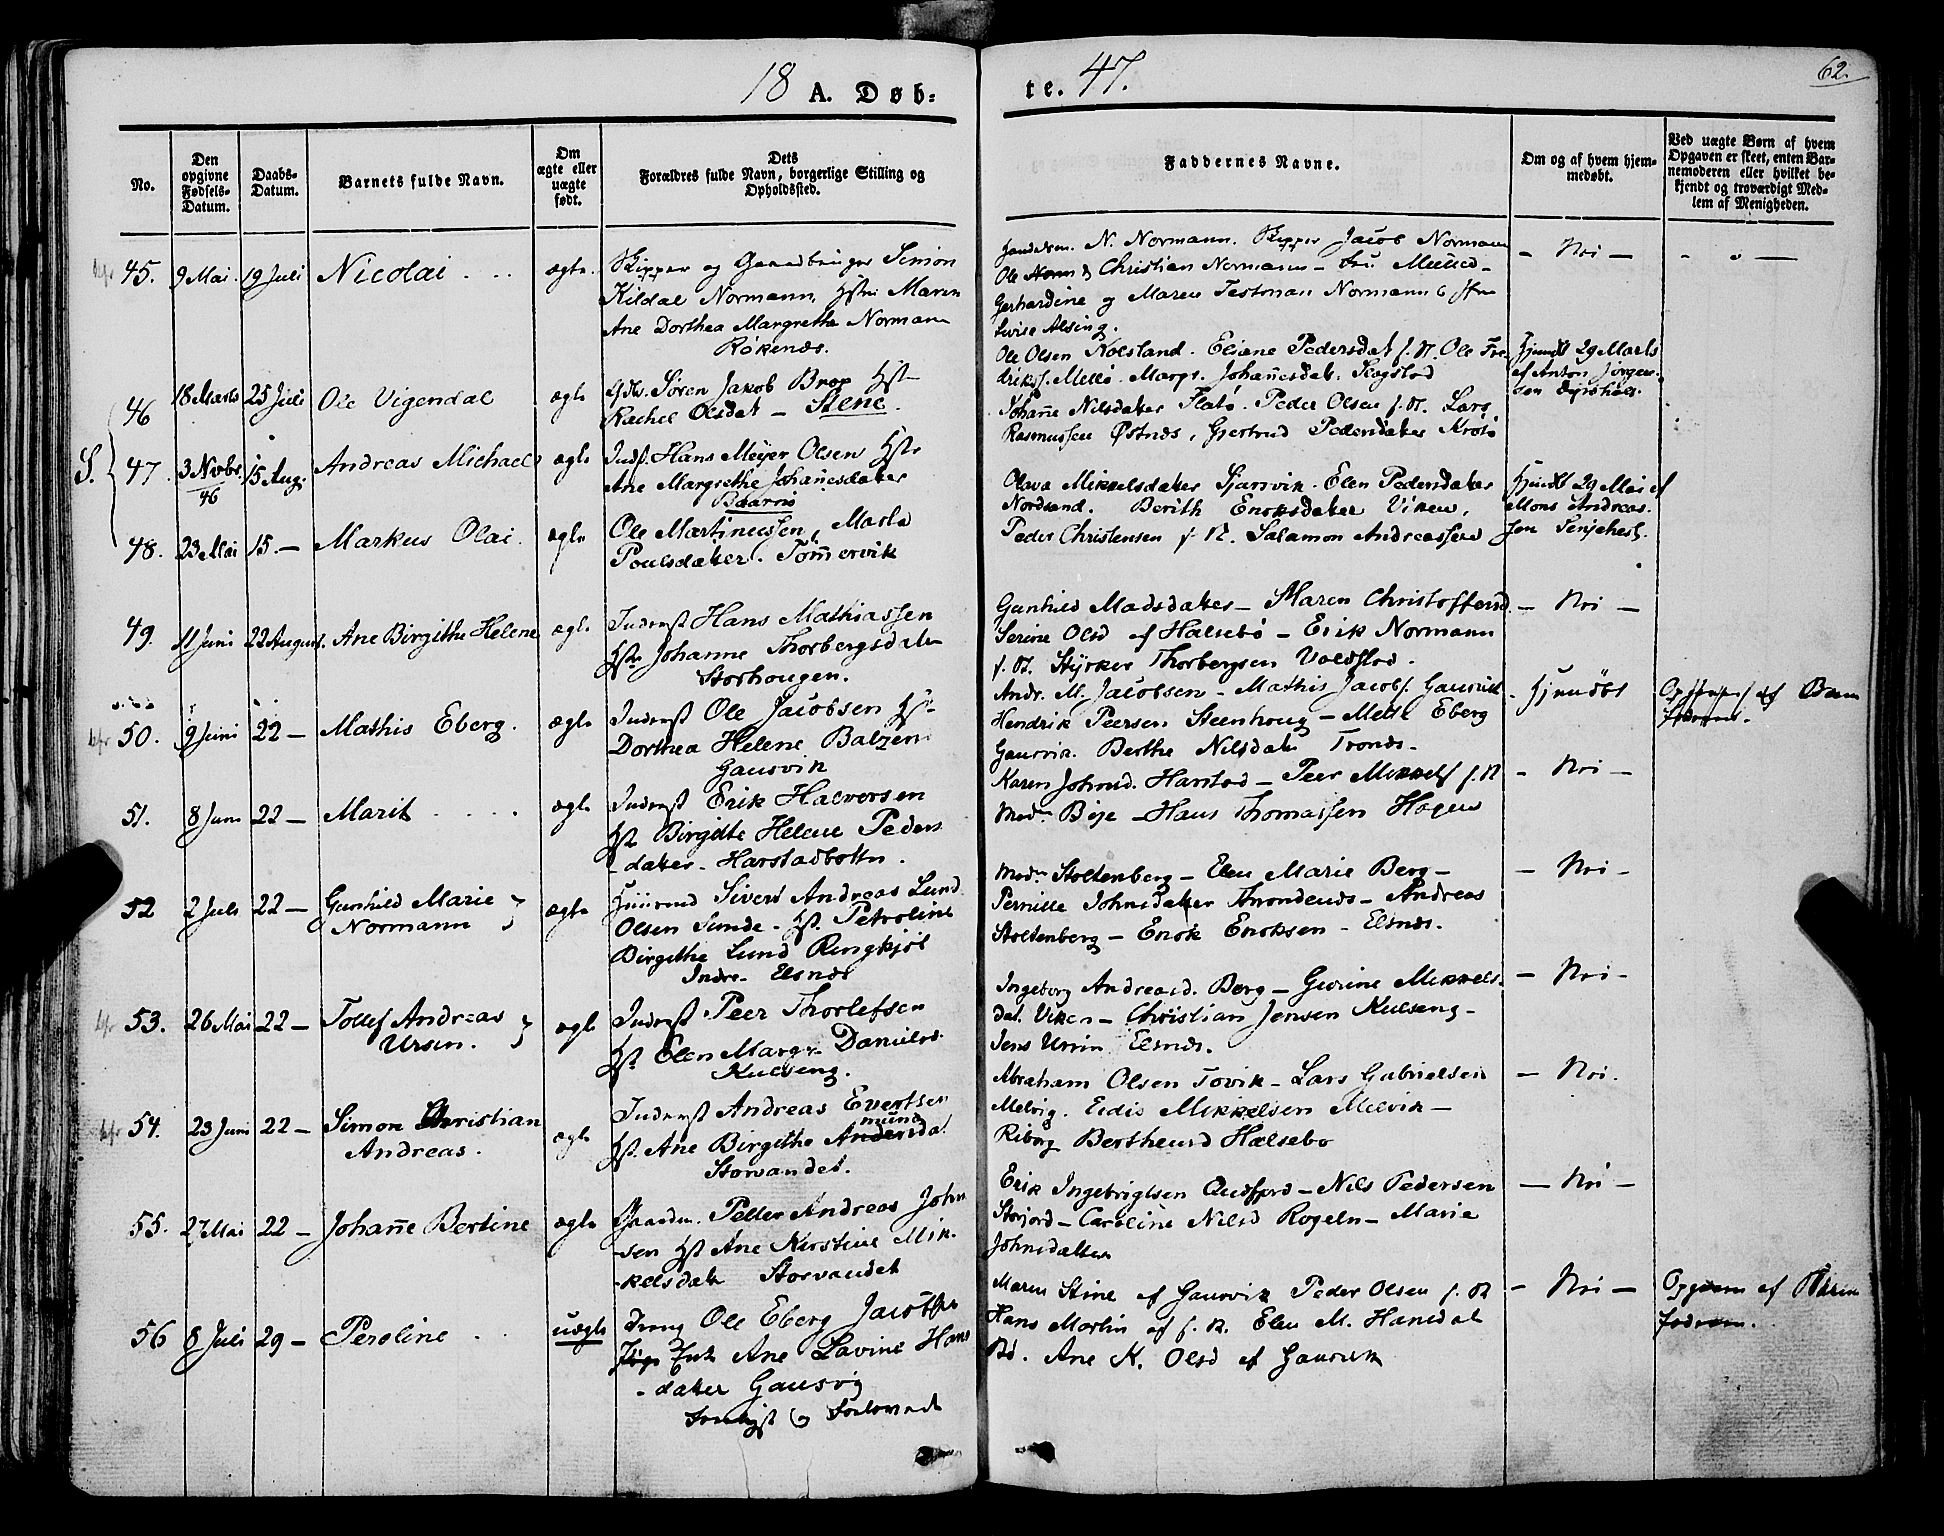 18 A. Døb=
te. 47.
62.
No.
Den opgivne Fødsels-Datum.
Daabs-Datum.
Barnets fulde Navn.
Om ægte eller uægte født.
Dets Forældres fulde Navn, borgerlige Stilling og Opholdssted.
Faddernes Navne.
Om og af hvem hjemmedøbt.
Ved uægte Børn af hvem Opgaven er skeet, enten Barnemoderen eller hvilket bekjendt og troværdigt Medlem af Menigheden.
45. 9 Mai 19 Juli Nicolai ægte
Skipper og Gaardbruger Simon
Kildal Normann, Hstr: Maren
Ane Dorthea Margrethe Normann
Røkenæs.
N. Normann. Skipper Jacob Normann
Ole Christian Normann
Gerhardine og Maren Normann
Lovise Alsing.
- Nei -
46 18 Marts 25 Juli Ole Vigendal ægte
Søren Jakob Brox Hstr
Rachel Olsdat - Stene.
Ole Olsen Kolsland. Eliane Pedersdat f. St. Ole
Margr. Johañesdat. Skogstad
Johañe Nilsdatter Flatø. Peder Olsen f. St. Lars
Rasmussen Østnæs, Gjertrud Pedersdatter Krotø
Hjemdt 29 Marts
af Anton Jørgensen Dyrstad.
S. 47. 3 Novbr 46 15 Aug. Andreas Michael ægte
Inds. Hans Meyer Olsen Hstr
Ane Margrethe Johañesdatter
Olava Mikkelsdatter Elen Pedersdatter
Nordsand. Berith Enoksdatter Viken,
48. 23 Mai 15. - Markus Olai. ægte
Ole Martinussen, Marta
Poulsdatter. Tom̃ervik
Peder Christensen f. St. Salamon Andreassen
Hjemdt 29 Mai af
Mons Andreassen Senjehest.
49. 11 Juni 22 August. Ane Birgithe Helene ægte
Inderst Hans Mathiassen
Hstr Johanne Thorbergsdatter
Storhougen.
Gunhild Madsdatter - Maren Christoffersd
Serine Olsd af Halsebø - Erik Normann
f. St. Styrker Thorbergsen Voldstad.
- Nei -
50. 9 Juni 22 - Mathis Eberg. ægte
Inderst Ole Jacobsen Hstr
Dorthea Helene Balzers
Gausvik
Andr. M. Jacobsen - Mathis Jacobs. Gausvik
Hendrik Peersen Steenhoug - Mette Eberg
Gausvik. Berthe Nilsdat Trones.
- Hjemdøbt
af Barnefaderen.
51. 8 Juni 22 - Marit ægte
Inderst Erik Halvorsen
Hst Birgitte Helene Peders
datter - Harstadbotn.
Karen Johnsd. Harstad - Peer Mikkels f. St
Madm Bye - Hans Thomassen Hagen
- Nei -
52 2 Juli 22 - Gunhild Marie Normann ægte
Sivert Andreas Lund
Olsen Sunde - Hst. Petroline
Birgithe Lund Ringkjøb
Indre- Elsnæs
Madm Stoltenberg - Elen Marie Berg -
Pernille Johnsdatter Trondenæs - Andreas
Stoltenberg - Enok Enoksen - Elsnæs.
- Nei -
53. 26 Mai 22 - Tollef Andreas Ursin. ægte
Inderst Peer Thorlefsen
Hst Elen Margr. Danielsd.
Kulseng.
Ingeborg Andreasd. Berg - Gurine Mikkels-
dat. Viken - Christian Jensen Kulseng -
Jens Ursin Elsnæs.
- Nei -
54. 23 Juni 22 - Simon Christian Andreas. ægte
Inderst Andreas Evertsen
Hst. Ane Birgithe Andersdat
Storvandet.
Abraham Olsen Tovik - Lars Gabrielsen
Melvig. Eidis Mikkelsen Melvik -
Riborg Bertheusd Halsebø
- Nei.
55. 27 Mai 22 - Johañe Bertine ægte
Gaardm. Petter Andreas John
sen Hst Ane Kirstine Mik-
kelsdatr Storvandet
Erik Ingebrigtsen Qudfjord - Nils Pedersen
Storjord - Caroline Nilsd Rogeln - Marie
Johnsdatter
- Nei -
56 8 Juli 29 - Peroline uægte
Dreng Ole Eberg Jacobsen
Pige Ane Lavine Hans
datter Gausvig
Maren Stine af Gausvik Peder Olsen f. St
Hans Martin af f. St. Elen M. Hansdat
Bø. Ane K. Olsd af Gausvik
- Nei -
Opgiven af Barnefaderen.